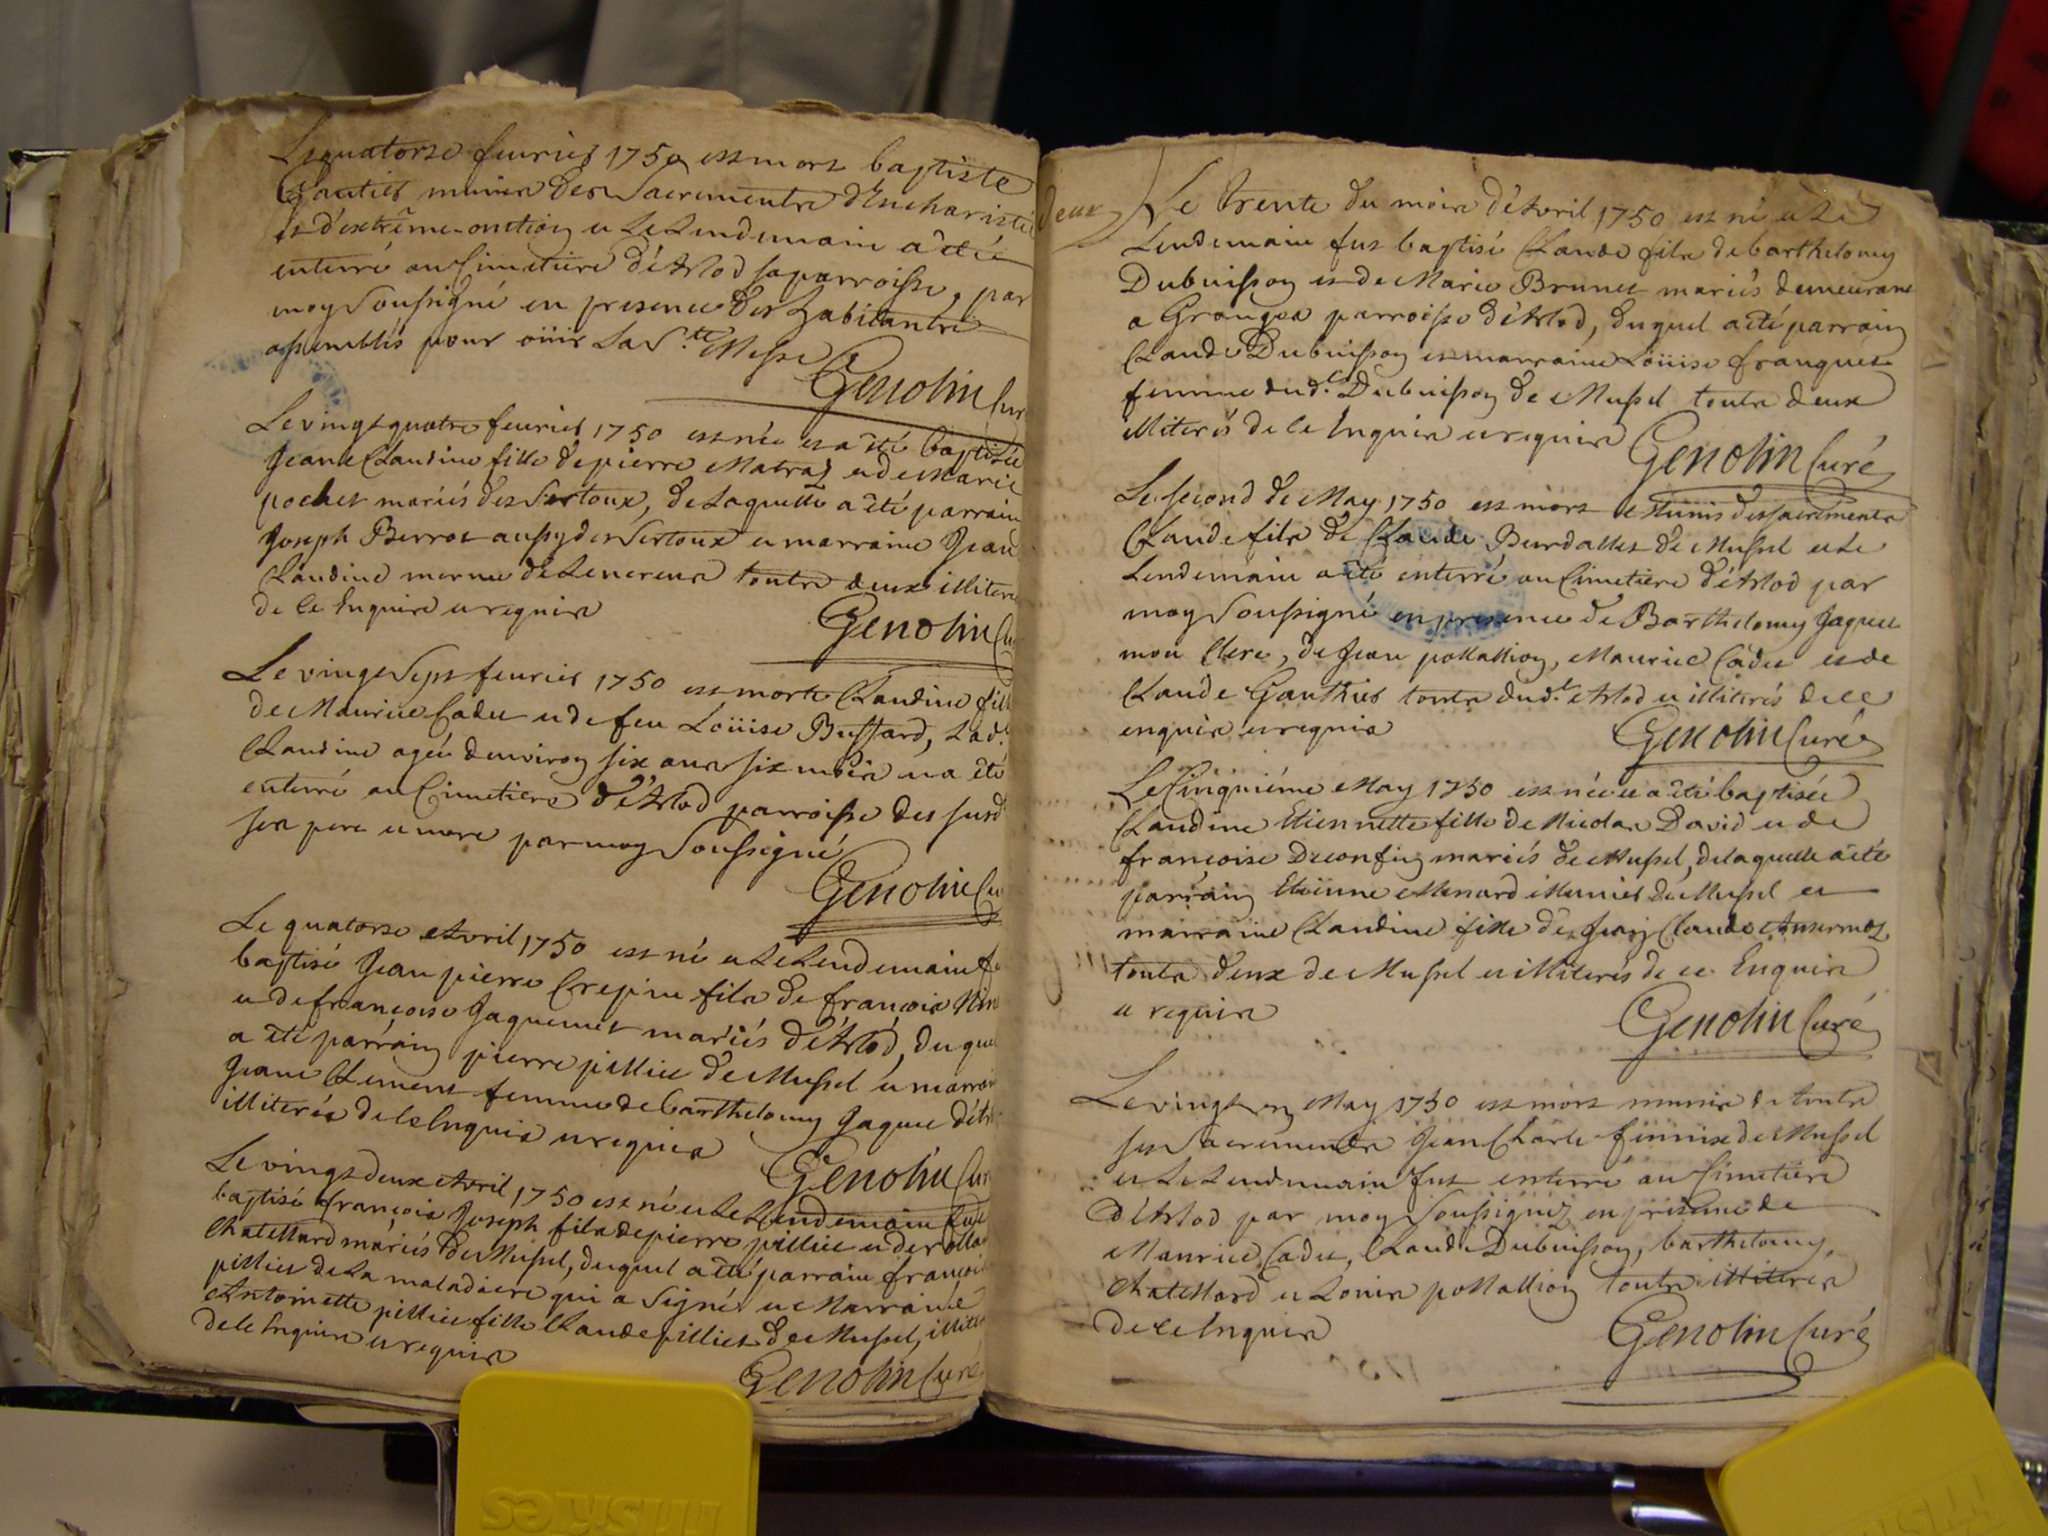 Le quatorse feurier 1750 est mort baptiste
Gautier munies des Sacrements d'Eucharistie
et d'extrême-onction et Le Lendemain a été
enterré au Cimetiere d'Arlod sa parroisse, par
moy Soussigné en presence des habitants
assemblés pour oüir La S.te Messe
Genolin Cur
Le vingt quatre feurier 1750 est née et a été baptisée
Jeanne Claudine fille de pierre Matraz et de Marie
pochet mariés des Sertoux, de Laquelle a été parrain
Joseph Berrot aussy des Sertoux et marraine Jean
Claudine toutes deux illiteres
de ce Enquis et requis
Genolin Cu
Le vingt Sept feurier 1750 est morte Claudine fill
de Maurice Cadet et de feu Loüise Buffard, Lad.
Claudine agée d'environ six ans six mois et a été
enterré au Cimetiere d'Arlod parroisse des susd
ses pere et mere par moy Soussigné
Genolin Cu
Le quatorse Avril 1750 est né et Le Lendemain fu
baptisé Jean pierre Crepin fils de françois
et de françoise Jaquemet mariés d'Arlod, duquel
a été parrain pierre pilliet de Mussel et marrai
Jeane Clement femme de barthelomy Jaque d'Arl
illiterés de ce Enquis et requis
Genolin Cur
Le vingt deux Avril 1750 est né et Le Lendemain fut
baptisé françois Joseph fils de pierre pilliet et de
Chatellard mariés de Mussel, duquel a été parrain françoi
pilliet de La maladiere qui a signé et Marraine
Antoinette pilliet fille Claude pilliet de Mussel, illite
de ce Enquis et requis
Genolin Curé
deux
Le trente du mois d'Avril 1750 est né et Le
Lendemain fut baptisé Claude fils de barthelomy
Dubuisson et de Marie Brunet mariés demeurant
a Granges parroisse d'Arlod, duquel a été parrain
Claude Dubuisson et marraine Loüise franquet
femme dud.t Dubuisson de Mussel touts deux
illiterés de ce Enquis et requis
Genolin Curé
Le second de May 1750 est mort et munis des sacrements
Claude fils de Claude Burdallet de Mussel et Le
Lendemain a été enterré au Cimetiere d'Arlod par
moy Soussigné en presence de Barthelomy Jaque
mon Clerc, de Jean pollallion, Maurice Cadet et de
Claude Gauthier touts dud.t Arlod et illiterés de ce
enquis et requis
Genolin Curé
Le Cinquiéme May 1750 est née et a été baptisée
Claudine Etiennette fille de Nicolas David et de
françoise Deconfin mariés de Mussel, de laquelle a été
parrain Etienne Menard Munier de Mussel et
marraine Claudine fille de Jean Claude Ansermoz
touts deux de Mussel et illiterés de ce Enquis
et requis
Genolin Curé
Le vingt un May 1750 est mort munis de touts
ses Sacrements Jean Charle de Mussel
et Le Lendemain fut enterré au Cimetiere
d'Arlod par moy Soussigné en presence de
Maurice Cadet, Claude Dubuisson, barthelomy
Chatellard et Louis pollallion touts illiteres
de ce Enquis
Genolin Curé